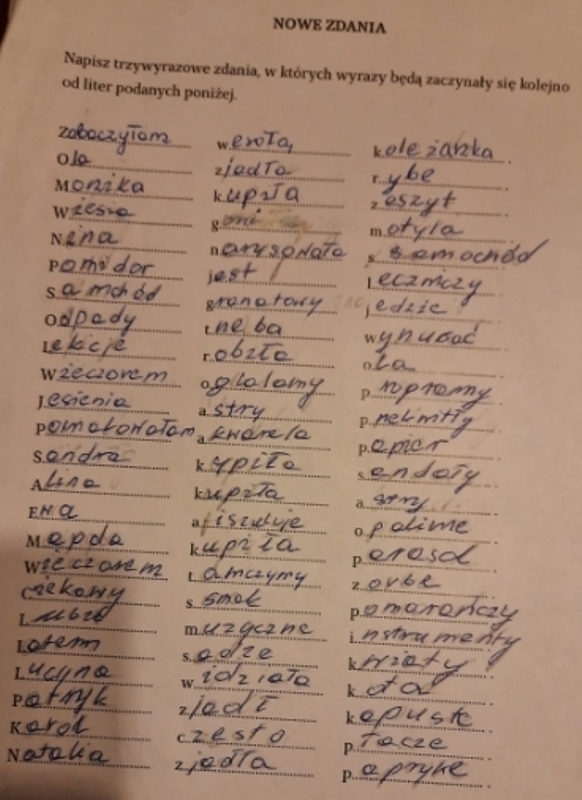 NOWE ZDANIA
Napisz trzywyrazowe zdania, w których wyrazy będą zaczynały się kolejno
od liter podanych poniżej.
Zobaczyłam wesołą koleżanka
Ola zjadła rybe
Monika kupiła zeszyt
Wiesia goni motyla
Nina narysowała samochód
Pomidor jest leczniczy
Samchód granatowy jedzie
Odpady tneba wynucać
Lekcje robiła ola
Wieczorem oglalamy programy
Jesienia astry
Pomalowałam akwarela papier
Sandra kupiła sandały
Alina kupiła
Ewa
Magda kupiła parasol
Wieczorem tańczymy
Ciekawy smok pomarańczy
muzyczne instrumenty
Latem sadze kwiaty
Lucyna widziała kota
Patryk zjadł kapuste
Karol często płacze
Natalia zjadła papryke